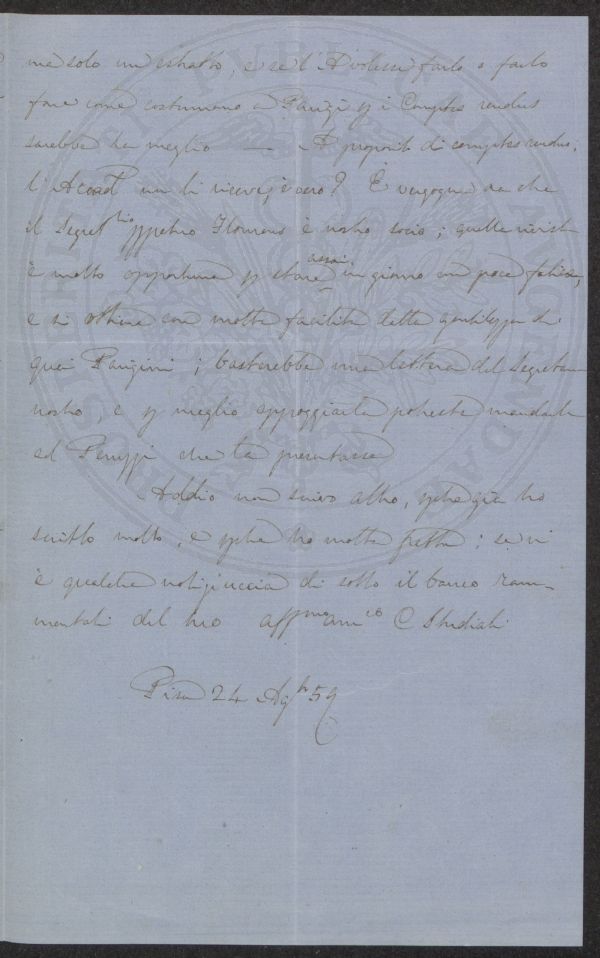 me solo un estratto, e se l'A volesse farlo o farlo
fare come costumano a Parigi p i Comptes rendus
sarebbe ha meglio — A proposito di comptes rendus;
l'Accad non li riceve, è vero? È vergogna che
il Segret.rio Flourens è nostro socio; quelle
è molto opportuna p stare assai in giorno con poca fatica,
e si ottiene con molta facilità dalla gentilezza di
quei Parigini; basterebbe una lettera del Segretario
nostro, e p meglio appoggiarla potreste mandarla
al Peruzzi che la presentasse
Addio non scrivo altro, pche già ho
scritto molto, e pche ho molta fretta; se vi
è qualche notiziuccia di sotto il banco ram-
mentati del tuo affmo amico C Studiati
Pisa 24 Ag.to 59